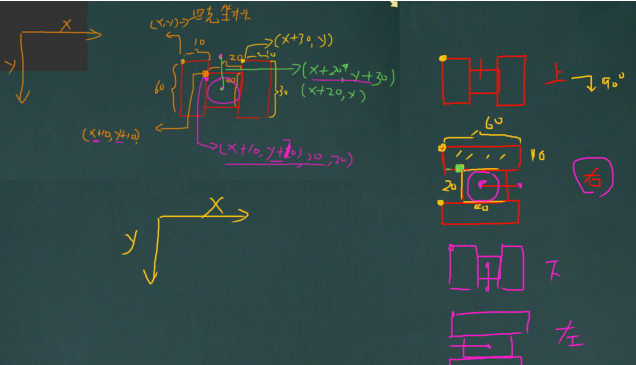 (x,y)→坦克坐标
X
y
10
20
10
(x+30,y)
60
40
30
(x+20,y+30)
(x+20,y)
(x+10,y+10)
(x+10,y+20,20,20)
X
y
上
90°
60
10
20
40
右
下
左